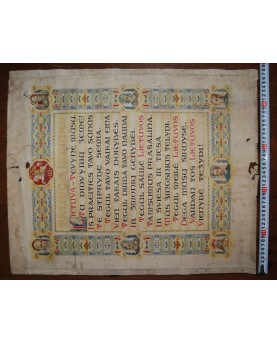 LIETUVA - TĖVYNE MUSŲ,
TU DIDVYRIŲ ŽEME!
IŠ PRAEITIES TAVO SŪNUS
TE STIPRYBĘ SEMIA.
TEGUL TAVO VAIKAI EINA
VIEN TAKAIS DORYBĖS,
TEGUL DIRBA TAVO NAUDAI
IR ŽMONIŲ GĖRYBEI.
TEGUL SAULĖ LIETUVOS
TAMSUMUS PRAŠALINA,
IR ŠVIESA IR TIESA
MUS ŽINGSNIUS TELYDI.
TEGUL MEILĖ LIETUVOS
DEGA MUSŲ
VARDAN TOS LIETUVOS
VIENYBĖ TEŽYDI!